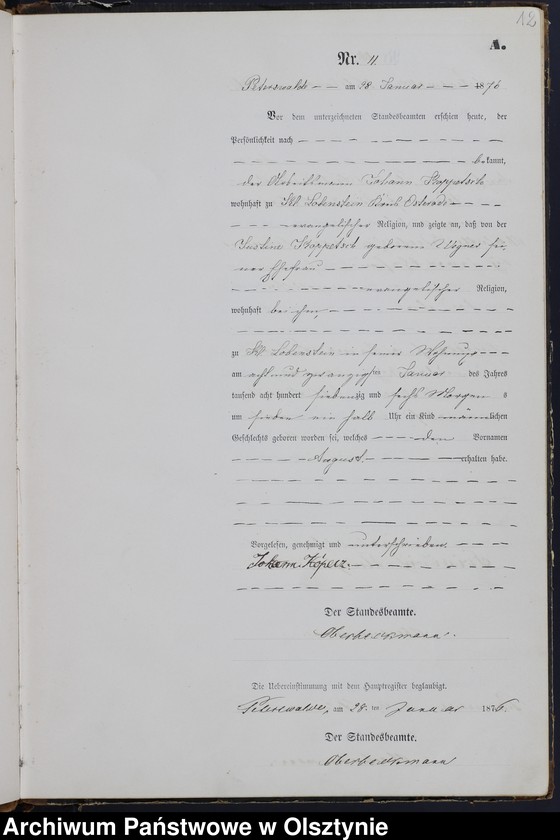 12
A.
Nr. 11.
Peterswalde am 28 Januar 1876
Vor dem unterzeichneten Standesbeamten erschien heute, der
Persönlichkeit nach
bekannt,
der Johann Koppetsch
wohnhaft zu Kl Lobenstein Kreis Osterode
evangelischer Religion, und zeigte an, daß von der
Justine Koppetsch geborene sei-
ner Ehefrau
evangelischer Religion,
wohnhaft bei ihm,
zu Kl. Lobenstein in seiner Wohnung
am acht und zwanzigsten Januar des Jahres
tausend acht hundert siebenzig und sechs Morgens
um sieben ein halb Uhr ein Kind männlichen
Geschlechts geboren worden sei, welches den Vornamen
August erhalten habe.
Vorgelesen, genehmigt und unterschrieben.
Johann
Der Standesbeamte.
Die Uebereinstimmung mit dem Hauptregister beglaubigt.
Peterswalde, am 28. ten Januar 1876.
Der Standesbeamte.
Archiwum Państwowe w Olsztynie